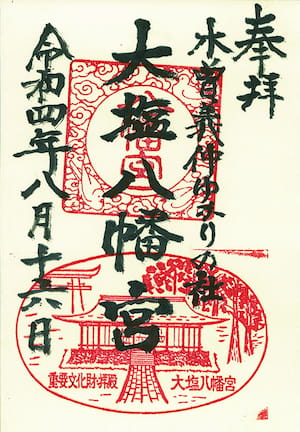 奉拝
木曽義仲ゆかりの社
大塩八幡宮
令和四年八月十六日
重要文化財拝殿
大塩八幡宮